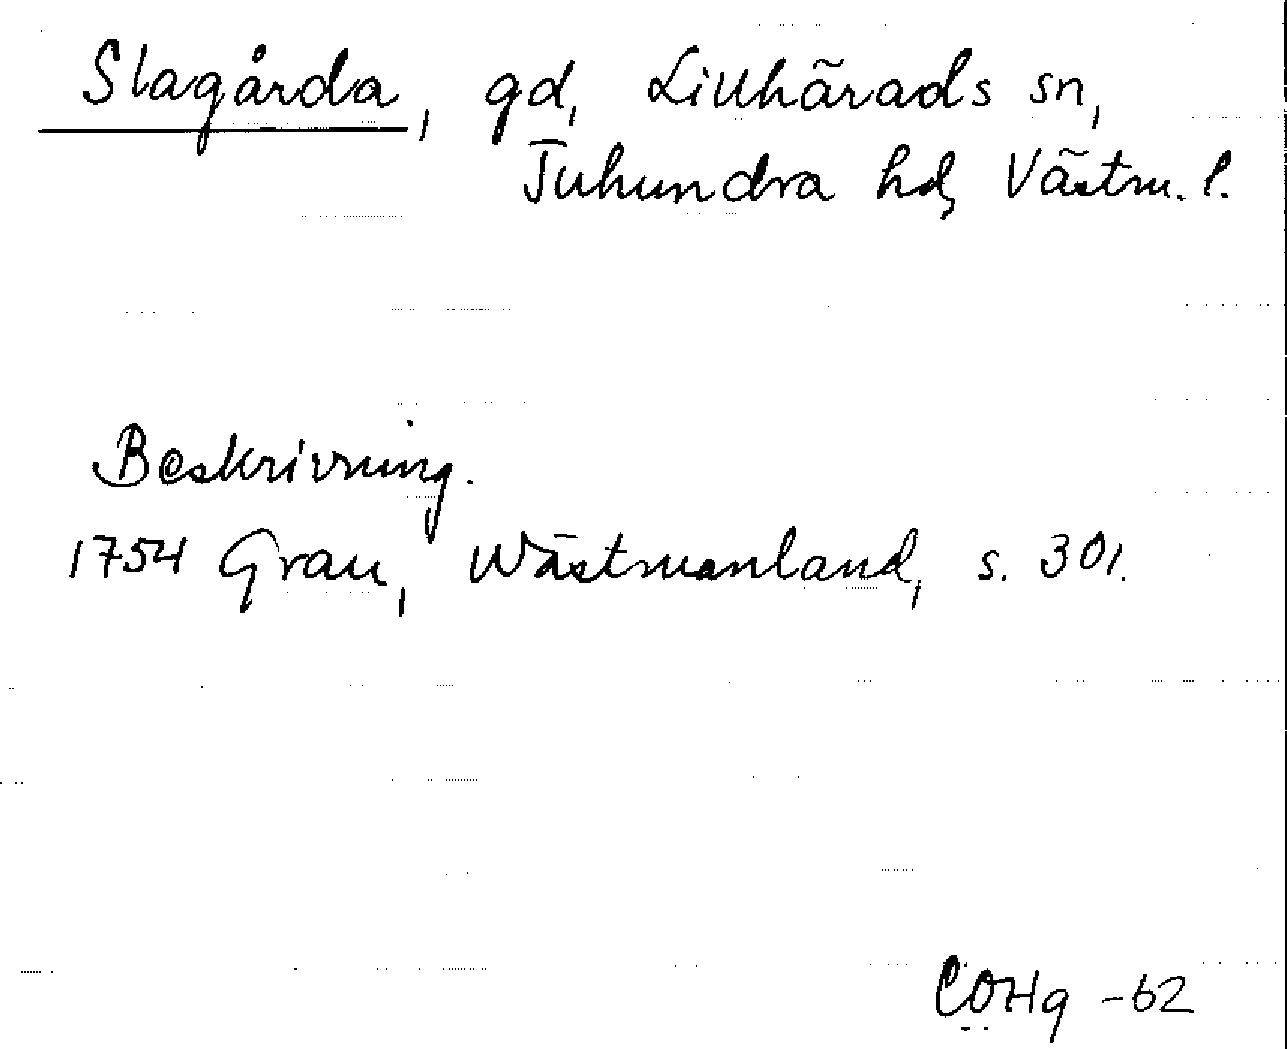 Slagårda, gd, Lillhärads sn,
Tuhundra hd, Västm. l.
Beskrivning.
1754 Grau, Wästmanland, s. 301.
COHg -62